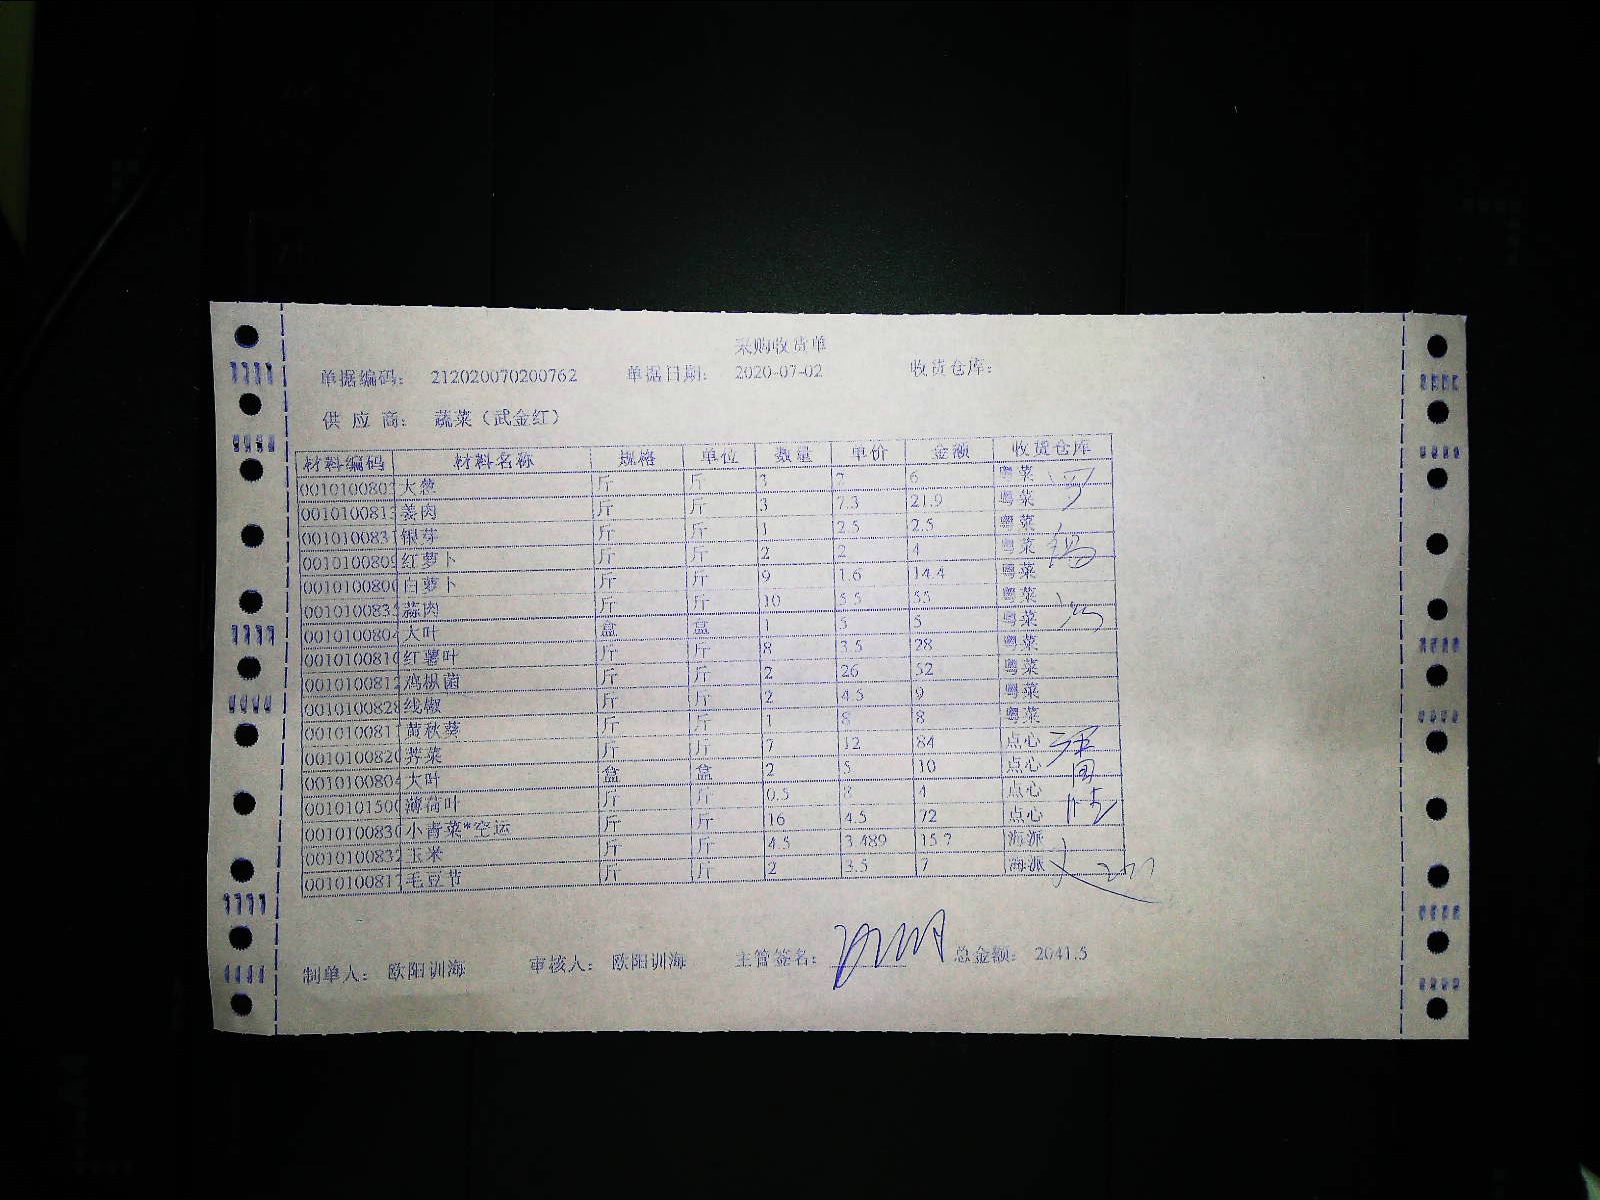 采购收货单
单据编码： 212020070200762 单据日期： 2020-07-02 收货仓库：
供 应 商： 蔬菜（武金红）
材料编码 材料名称 规格 单位 数量 单价 金额 收货仓库
001010080 大葱 斤 斤 3 2 6 粤菜
001010081 姜肉 斤 斤 3 7.3 21.9 粤菜
001010083 银芽 斤 斤 1 2.5 2.5 粤菜
001010080 红萝卜 斤 斤 2 2 4 粤菜
001010080 白萝卜 斤 斤 9 1.6 14.4 粤菜
001010083 蒜肉 斤 斤 10 5.5 55 粤菜
001010080 大叶 盒 盒 1 5 5 粤菜
001010081 红薯叶 斤 斤 8 3.5 28 粤菜
001010081 鸡枞菌 斤 斤 2 26 52 粤菜
001010082 线椒 斤 斤 2 4.5 9 粤菜
001010081 黄秋葵 斤 斤 1 8 8 粤菜
001010082 荠菜 斤 斤 7 12 84 点心
001010080 大叶 盒 盒 2 5 10 点心
001010150 薄荷叶 斤 斤 0.5 8 4 点心
001010083 小青菜*空运 斤 斤 16 4.5 72 点心
001010083 玉米 斤 斤 4.5 3.489 15.7 海派
001010081 毛豆节 斤 斤 2 3.5 7 海派
制单人： 欧阳训海 审核人： 欧阳训海 主管签名： 总金额： 2041.5